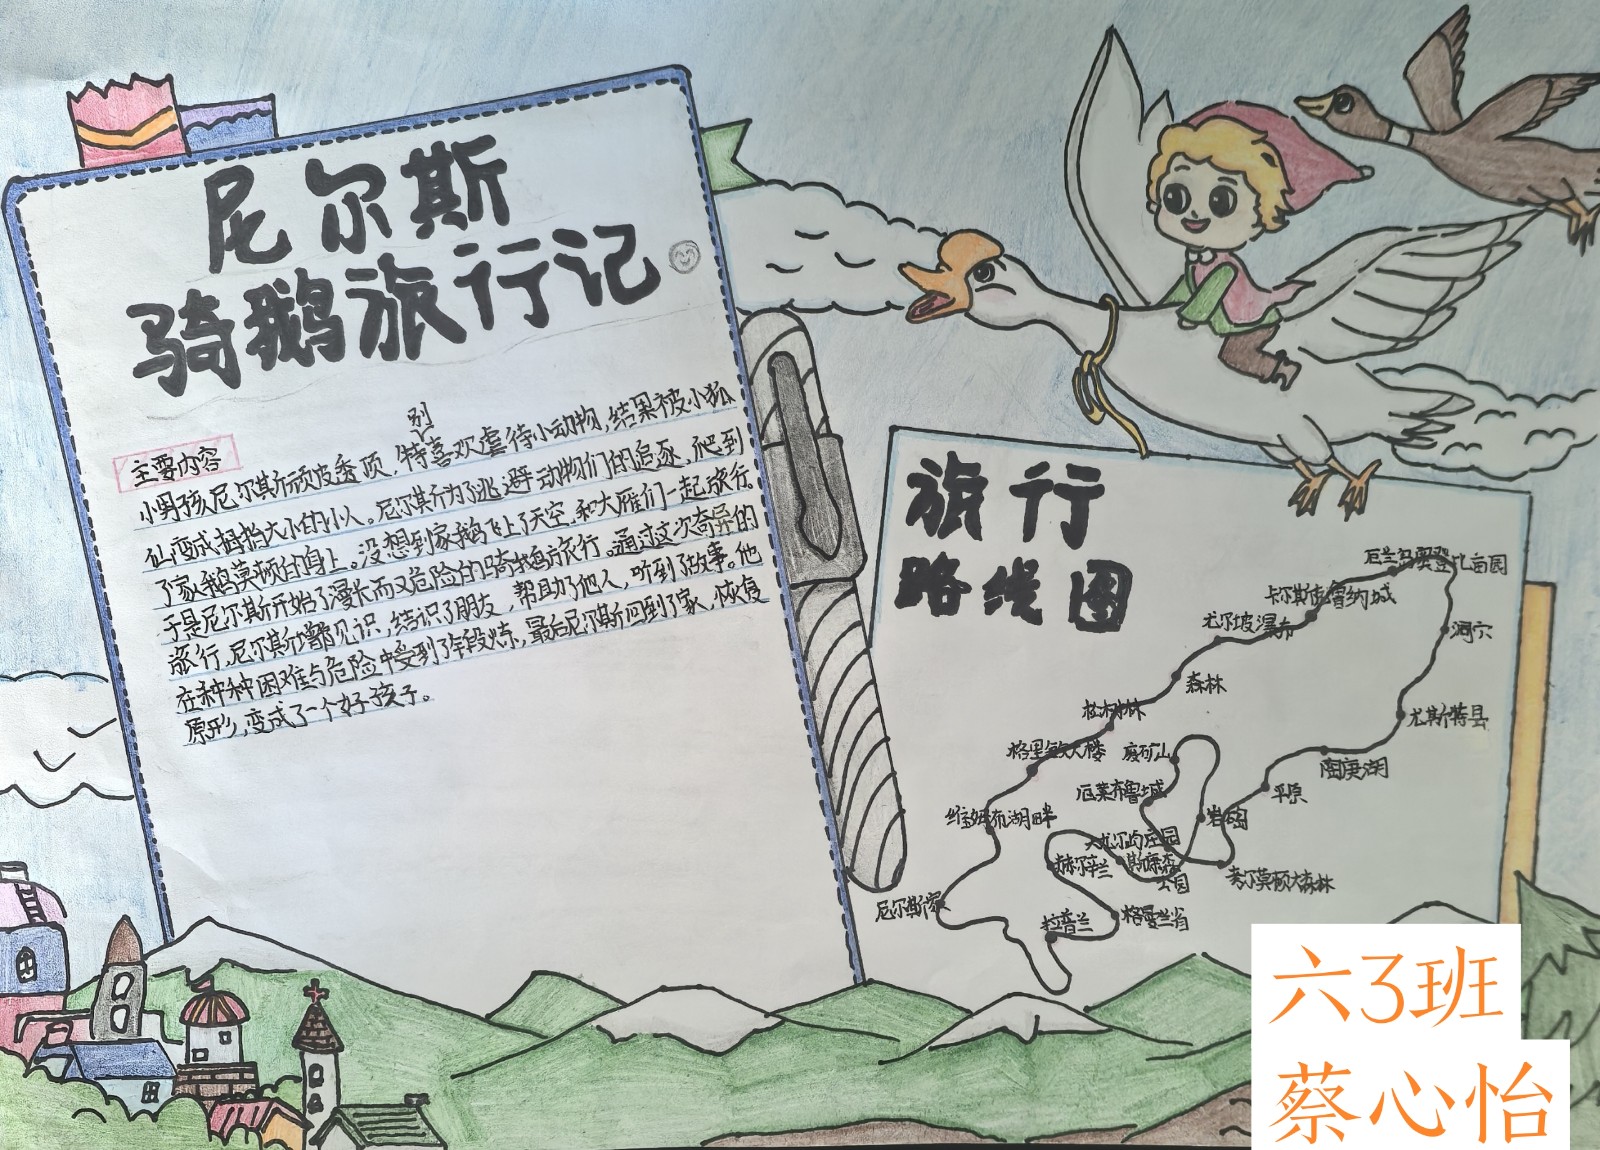 尼尔斯
骑鹅旅行记
主要内容
小男孩尼尔斯顽皮透顶，特别喜欢虐待小动物，结果被小狐
仙变成拇指大小的小人。尼尔斯为了逃避动物们的追逐，爬到
了家鹅莫顿的身上。没想到家鹅飞上了天空，和大雁们一起旅行。
于是尼尔斯开始了漫长而又危险的骑鹅旅行。通过这次奇异的
旅行，尼尔斯增长见识，结识了朋友，帮助了他人，听到了故事。他
在种种困难与危险中受到了段炼，最后尼尔斯回到了家，恢复
原形，变成了一个好孩子。
旅行
路线图
厄兰岛奥登比亩园
卡尔斯克鲁纳城
尤尔坡瀑布
洞穴
森林
尤斯特县
松树林
格里敏大楼
废矿山
陶庚湖
厄莱布鲁城
平原
维姆布湖畔
岩洞
大尤尔的庄园
赫尔辛兰
斯康森
公园
考尔莫顿大森林
尼尔斯家
拉普兰
格曼兰省
六3班
蔡心怡